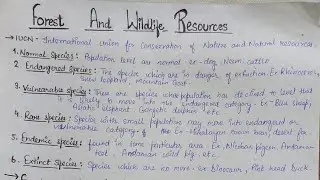 Forest And Wildlife Resources
→ IUCN - International Union for Conservation of Nature and Natural Resources.
1. Normal Species: Population level are normal ex- dog, Neem, cattle
2. Endangered Species: The species which are in danger of extinction. Ex-Rhinoceros,
snow leopard, mountain Goat.
3. Vulnerable species: These are species whose population has declined to level that
is likely to move into the endangered category. Ex- Blue sheep,
Asiatic elephant, Gangetic dolphin etc.
4. Rare species: Species with small populations may move into endangered or
vulnerable category. Ex- Himalayan brown bear, desert fox
5. Endemic species: found in some particular area. Ex. Nikobar pigeon, Andaman
teal, Andaman wild pig, etc.
6. Extinct Species: Species which are no more. Ex Pink head duck